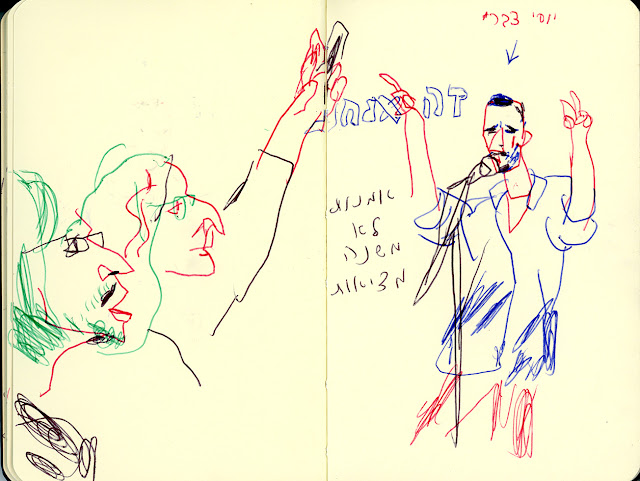 יוסי צברי
דה
אמנות
לא
משנה
מציאות